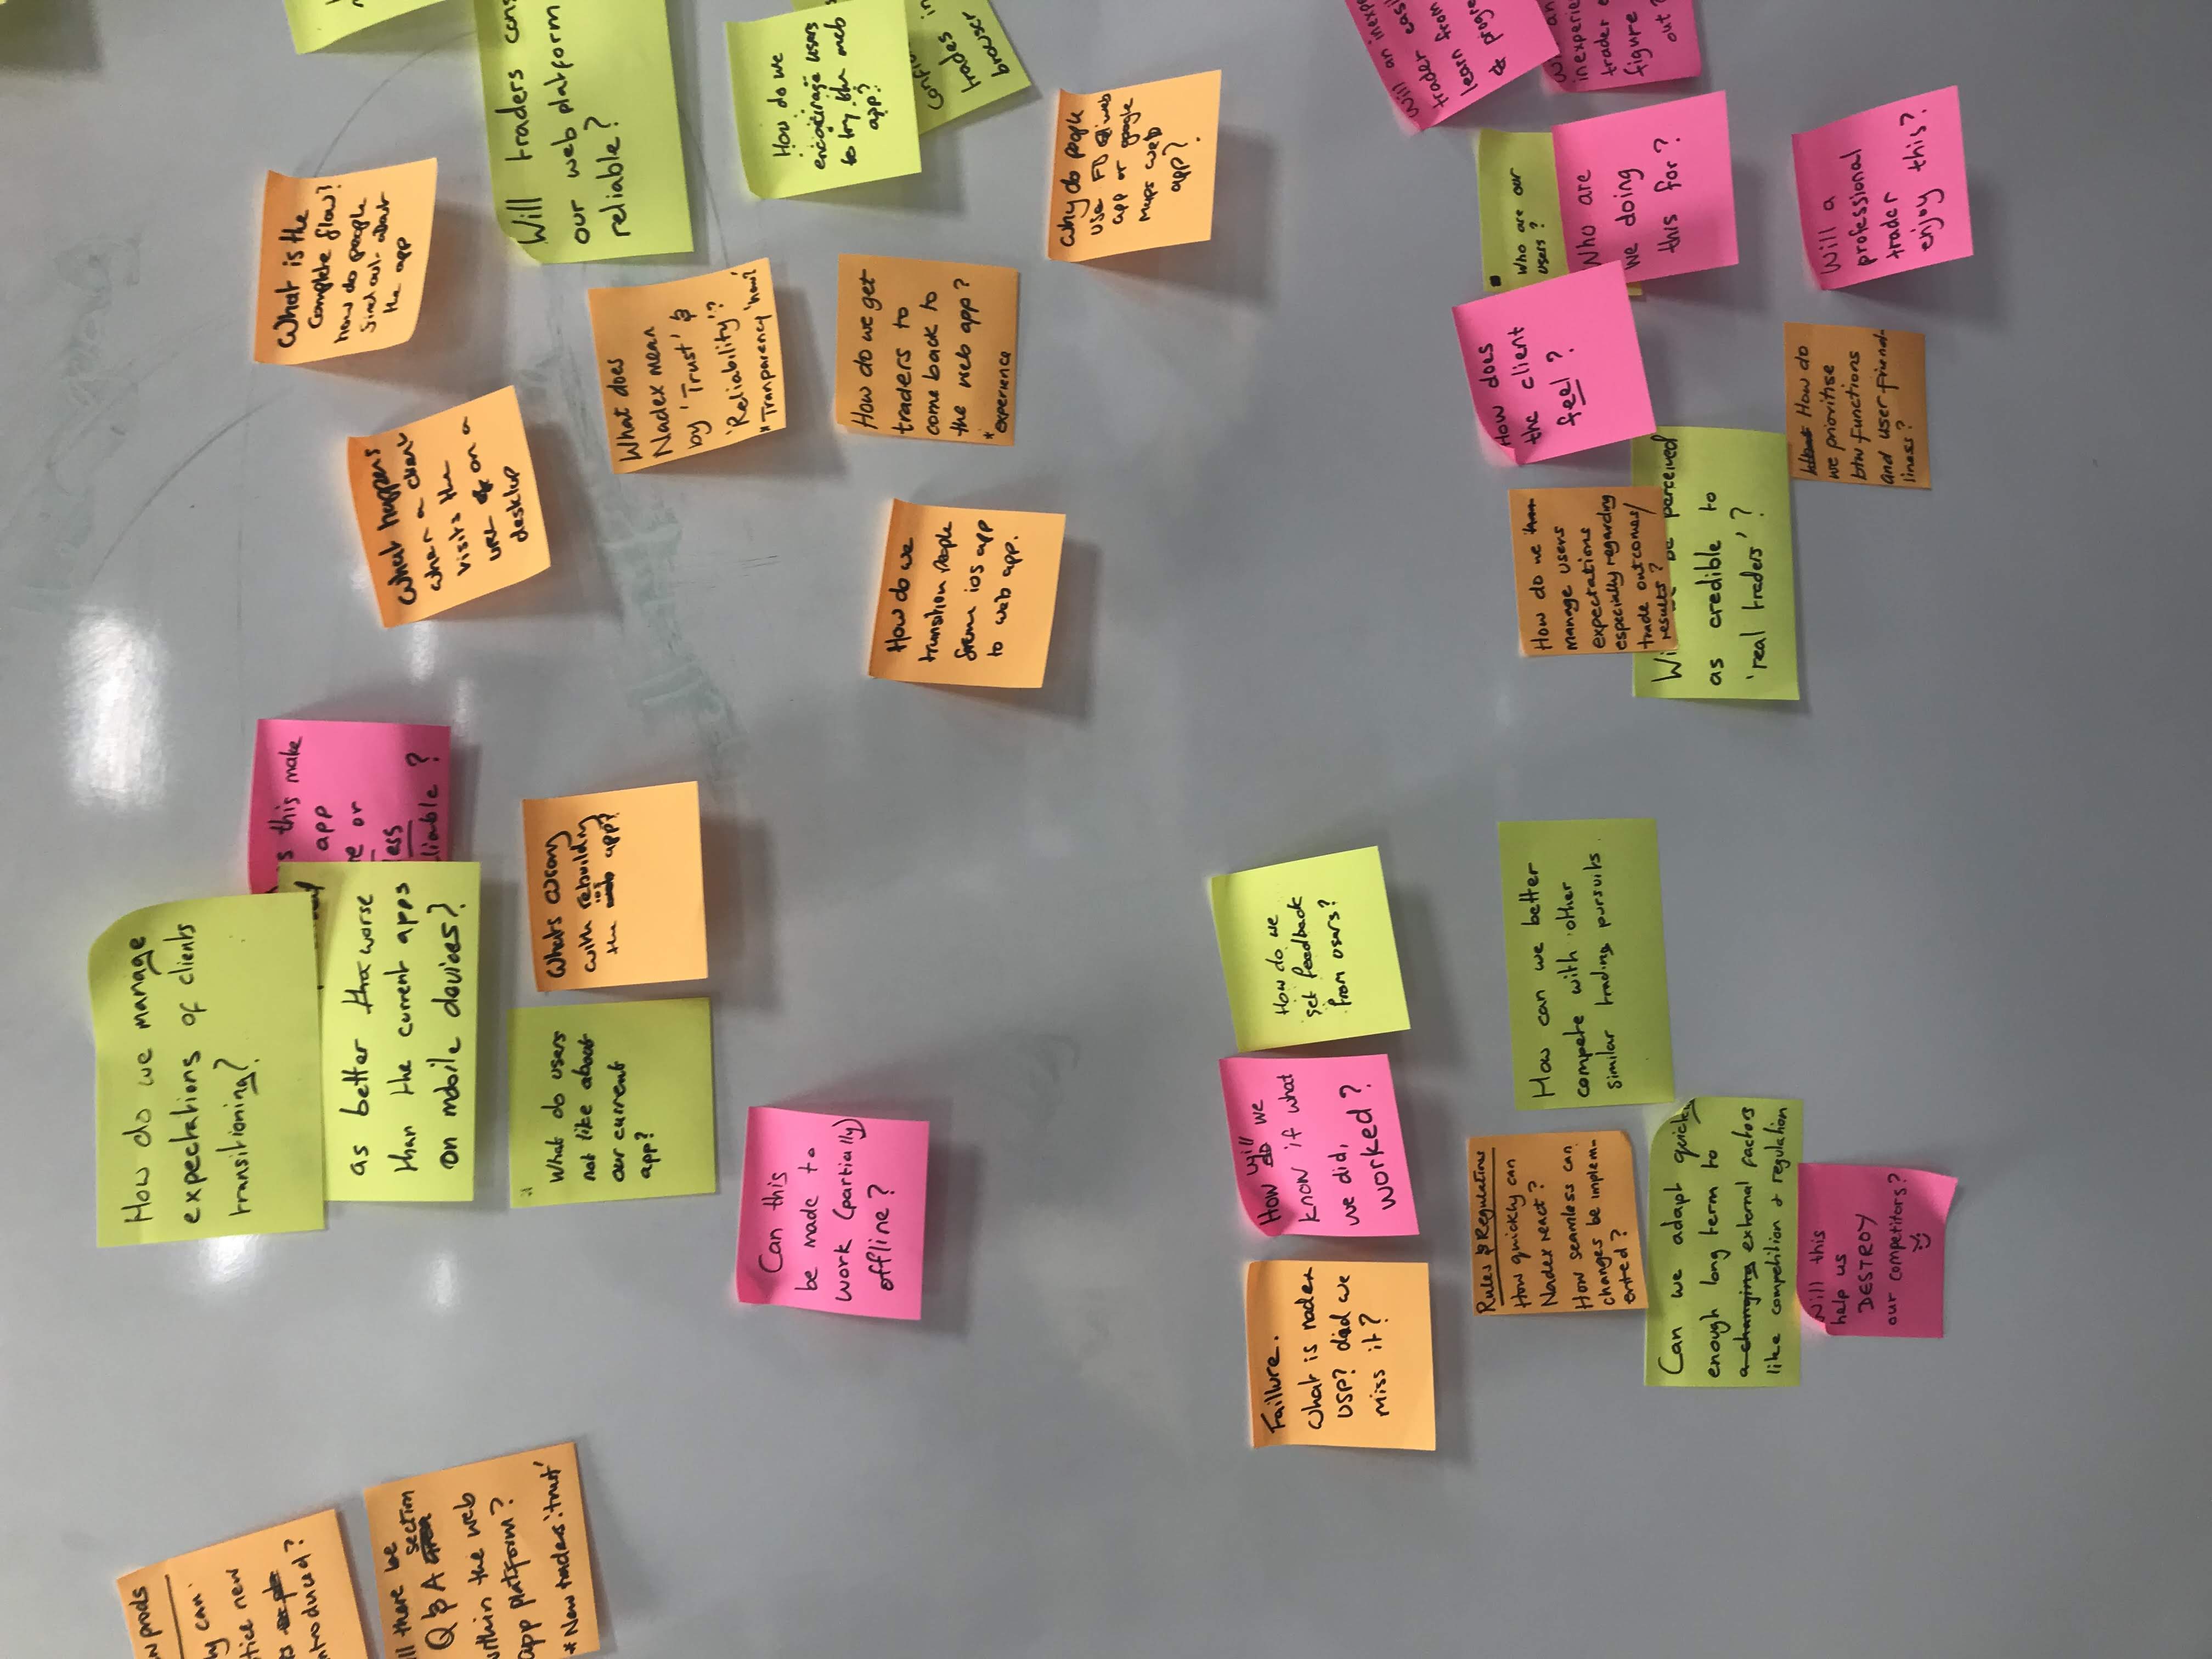 prods
can
new
introduced?
there be
section
Q & A
within the web
app platform?
* New traders: 'trust'
How do we manage
expectations of clients
transitioning?
as better tha worse
than the current apps
on mobile devices?
this make
app
or
?
What do users
not like about
our current
app?
Whats wrong
with rebuilding
the ios app?
Can this
be made to
work (partially)
offline?
What happens
when a client
visits the
URL on a
desktop
What is the
complete flow?
how do people
find out about
the app
Will traders
our web platform
reliable?
What does
Nadex mean
by 'Trust' &
'Reliability'?
* Tranparency 'how?'
How do we
encourage users
to try the web
app?
trades in
browser
How do we
transition people
from ios app
to web app.
How do we get
traders to
come back to
the web app?
* experience
Why do people
use FB web
app or google
maps web
app?
Faillure.
What is nadex
USP? did we
miss it?
How do will we
know if what
we did,
worked?
How do we
get feedback
from users?
Rules & Regulations
How quickly can
Nadex react?
How seamless can
changes be implem-
ented?
How can we better
compete with other
similar trading pursuits
Can we adapt quickly
enough long term to
a changing external factors
like competition & regulation
Will this
help us
DESTROY
our competitors?
How do we
manage users
expectations
especially regarding
trade outcomes/
results?
be perceived
as credible to
'real traders'?
How does
the client
feel?
Who are our
users?
Who are
we doing
this for?
Will an
trader
learn from
&
an
trader
figure
out?
What How do
we prioritise
btw functions
and user friend-
liness?
Will a
professional
trader
enjoy this?